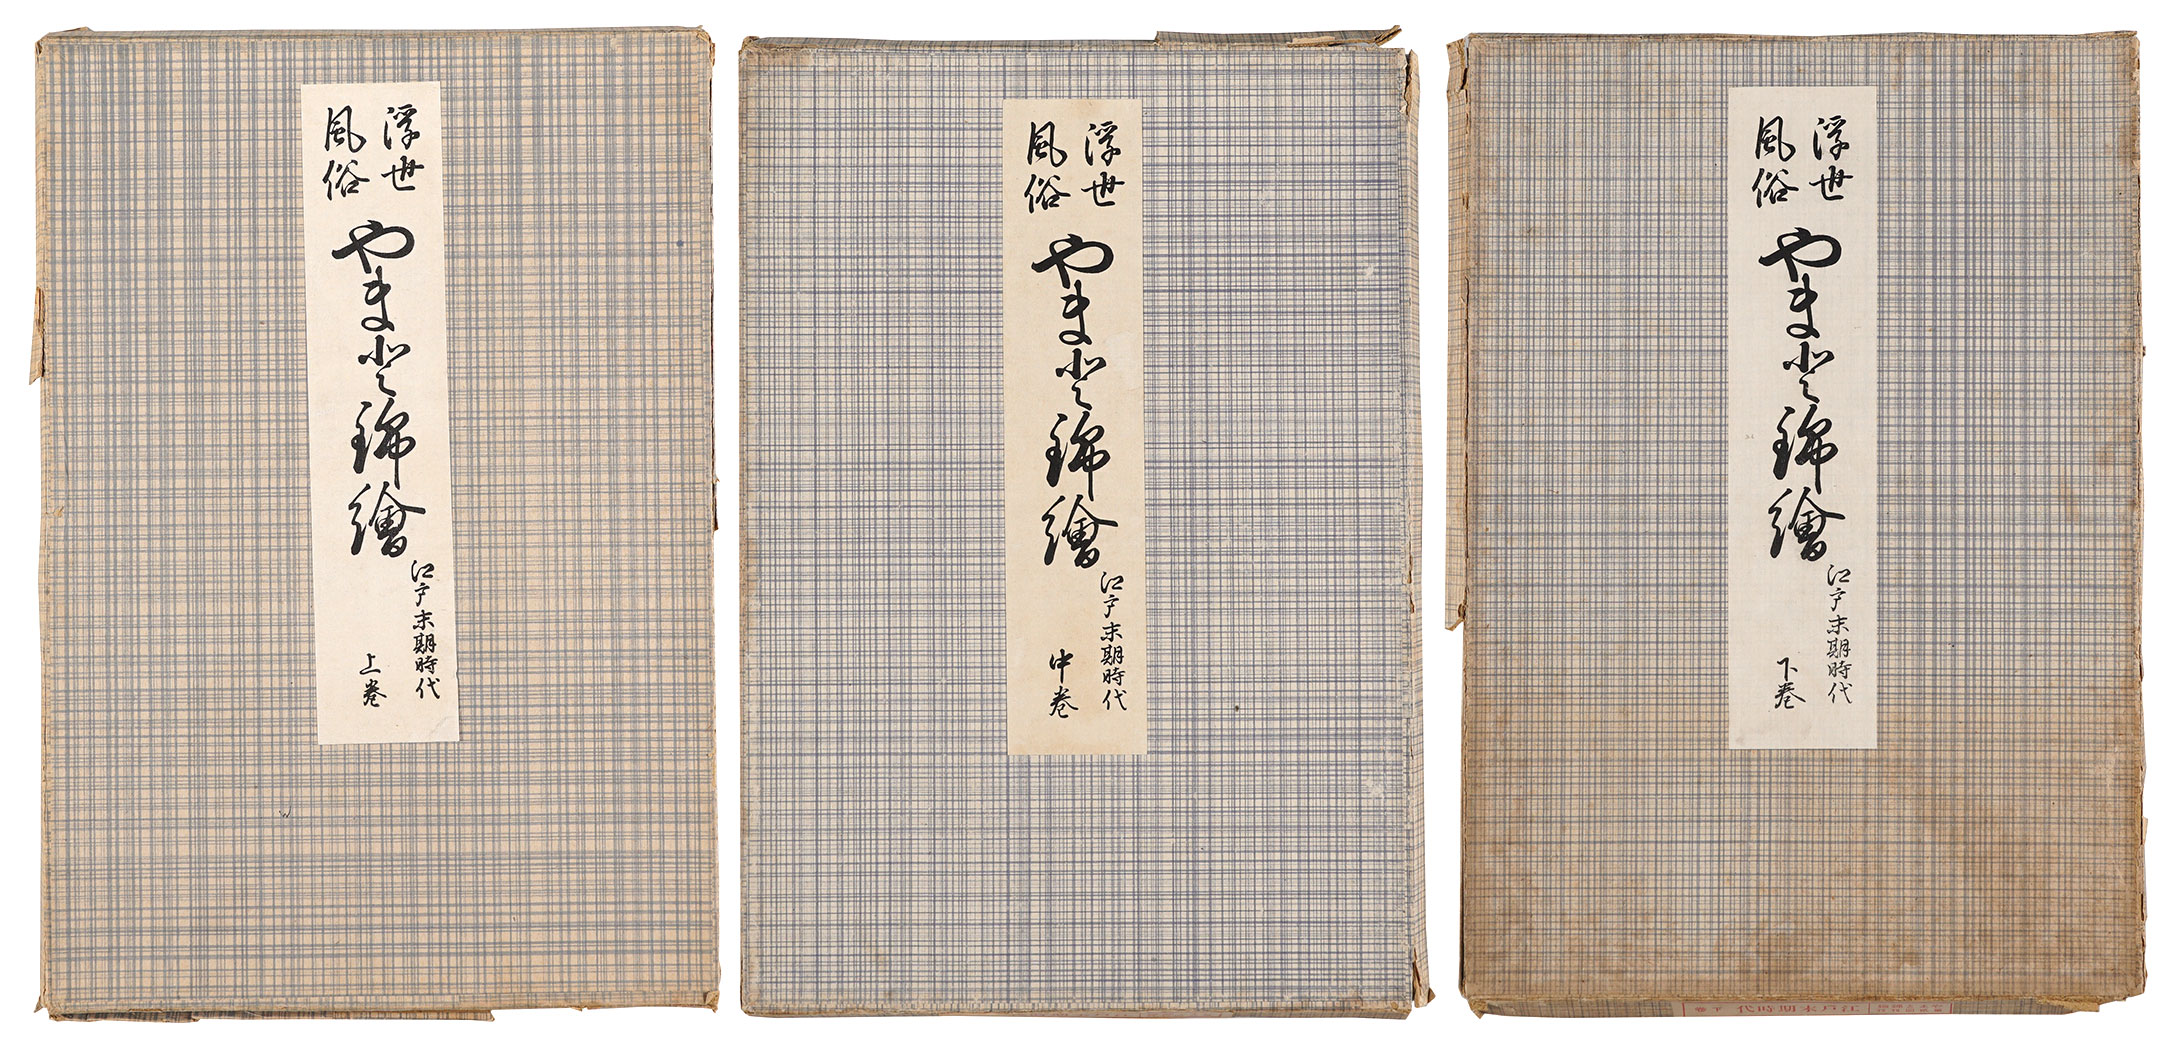 浮世
風俗
やまと錦繪
江戸末期時代
上巻
浮世
風俗
やまと錦繪
江戸末期時代
中巻
浮世
風俗
やまと錦繪
江戸末期時代
下巻
江戸末期時代 下巻